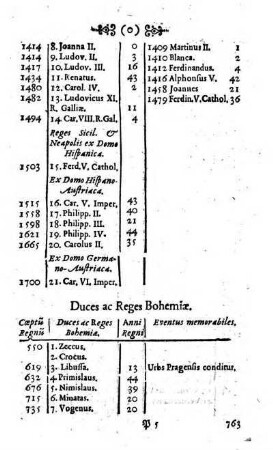 (0)
1414 8. Joanna II. 0
1414 9. Ludov. II. 3
1417 10. Ludov. III. 16
1434 11. Renatus. 43
1480 12. Carol. IV. 2
1482 13. Ludovicus XI.
R. Galliæ. 11
1494 14. Car. VIII. R. Gal. 4
Reges Sicil. &
Neapolis ex Domo
Hispanica.
1503 15. Ferd. V. Cathol.
Ex Domo Hispano-
Austriaca.
1515 16. Car. V. Imper. 43
1558 17. Philipp. II. 40
1598 18. Philipp. III. 21
1621 19. Philipp. IV. 44
1665 20. Carolus II. 35
Ex Domo Germa-
no-Austriaca.
1700 21. Car. VI. Imper.
1409 Martinus II. 1
1410 Blanca. 2
1412 Ferdinandus. 4
1416 Alphonsus V. 42
1458 Joannes 21
1479 Ferdin. V. Cathol. 36
Duces ac Reges Bohemiæ.
Cœptū Regnū Duces ac Reges Bohemiæ. Anni Regni Eventus memorabiles.
550 1. Zeccus.
2. Crocus.
619 3. Libussa. 13 Urbs Pragensis conditur.
632 4. Primislaus. 44
676 5. Nimislaus. 39
715 6. Minatas. 20
735 7. Vogenus. 20
P 5 763